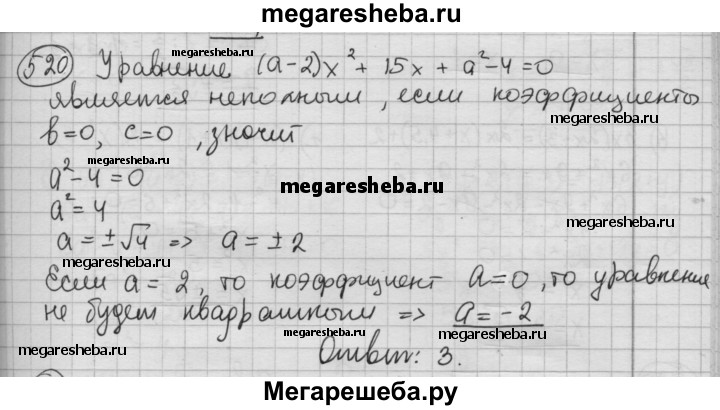 megaresheba.ru
520 Уравнение (a-2)x²+15x+a²-4=0
megaresheba.ru
является неполным, если коэффициенты
b=0, c=0, значит
megaresheba.ru
a²-4=0
megaresheba.ru
megaresheba.ru
a²=4
megaresheba.ru
a=±√4 => a=±2
megaresheba.ru
Если a=2, то коэффициент a=0, то уравнение
не будет квадратным => a=-2
megaresheba.ru
megaresheba.ru
megaresheba.ru
Ответ: 3.
Мегарешеба.ру